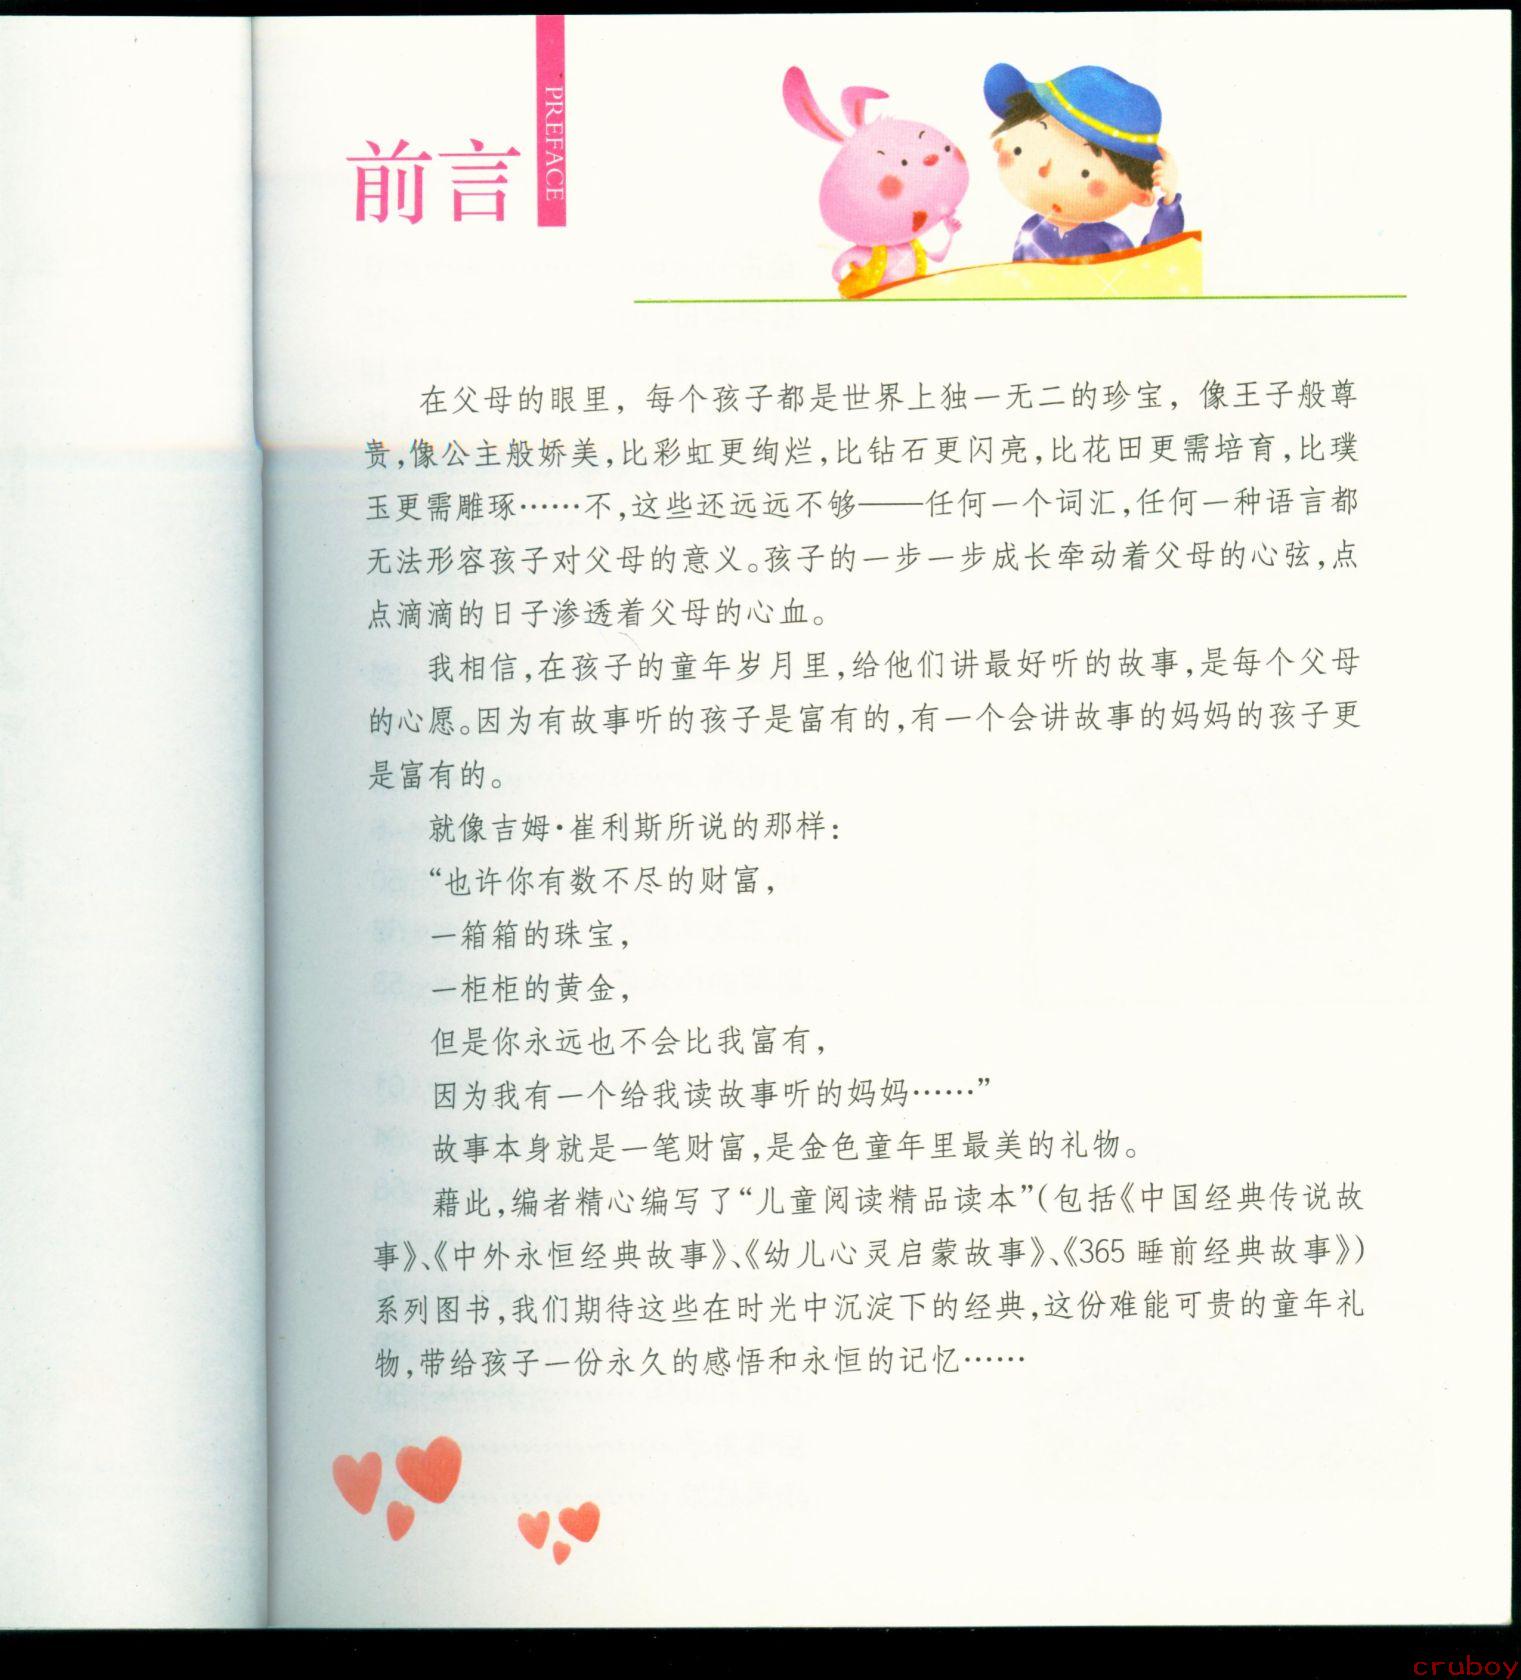 前言
PREFACE
在父母的眼里，每个孩子都是世界上独一无二的珍宝，像王子般尊
贵，像公主般娇美，比彩虹更绚烂，比钻石更闪亮，比花田更需培育，比璞
玉更需雕琢……不，这些还远远不够——任何一个词汇，任何一种语言都
无法形容孩子对父母的意义。孩子的一步一步成长牵动着父母的心弦，点
点滴滴的日子渗透着父母的心血。
我相信，在孩子的童年岁月里，给他们讲最好听的故事，是每个父母
的心愿。因为有故事听的孩子是富有的，有一个会讲故事的妈妈的孩子更
是富有的。
就像吉姆·崔利斯所说的那样：
“也许你有数不尽的财富，
一箱箱的珠宝，
一柜柜的黄金，
但是你永远也不会比我富有，
因为我有一个给我读故事听的妈妈……”
故事本身就是一笔财富，是金色童年里最美的礼物。
藉此，编者精心编写了“儿童阅读精品读本”（包括《中国经典传说故
事》、《中外永恒经典故事》、《幼儿心灵启蒙故事》、《365 睡前经典故事》）
系列图书，我们期待这些在时光中沉淀下的经典，这份难能可贵的童年礼
物，带给孩子一份永久的感悟和永恒的记忆……
cruboy